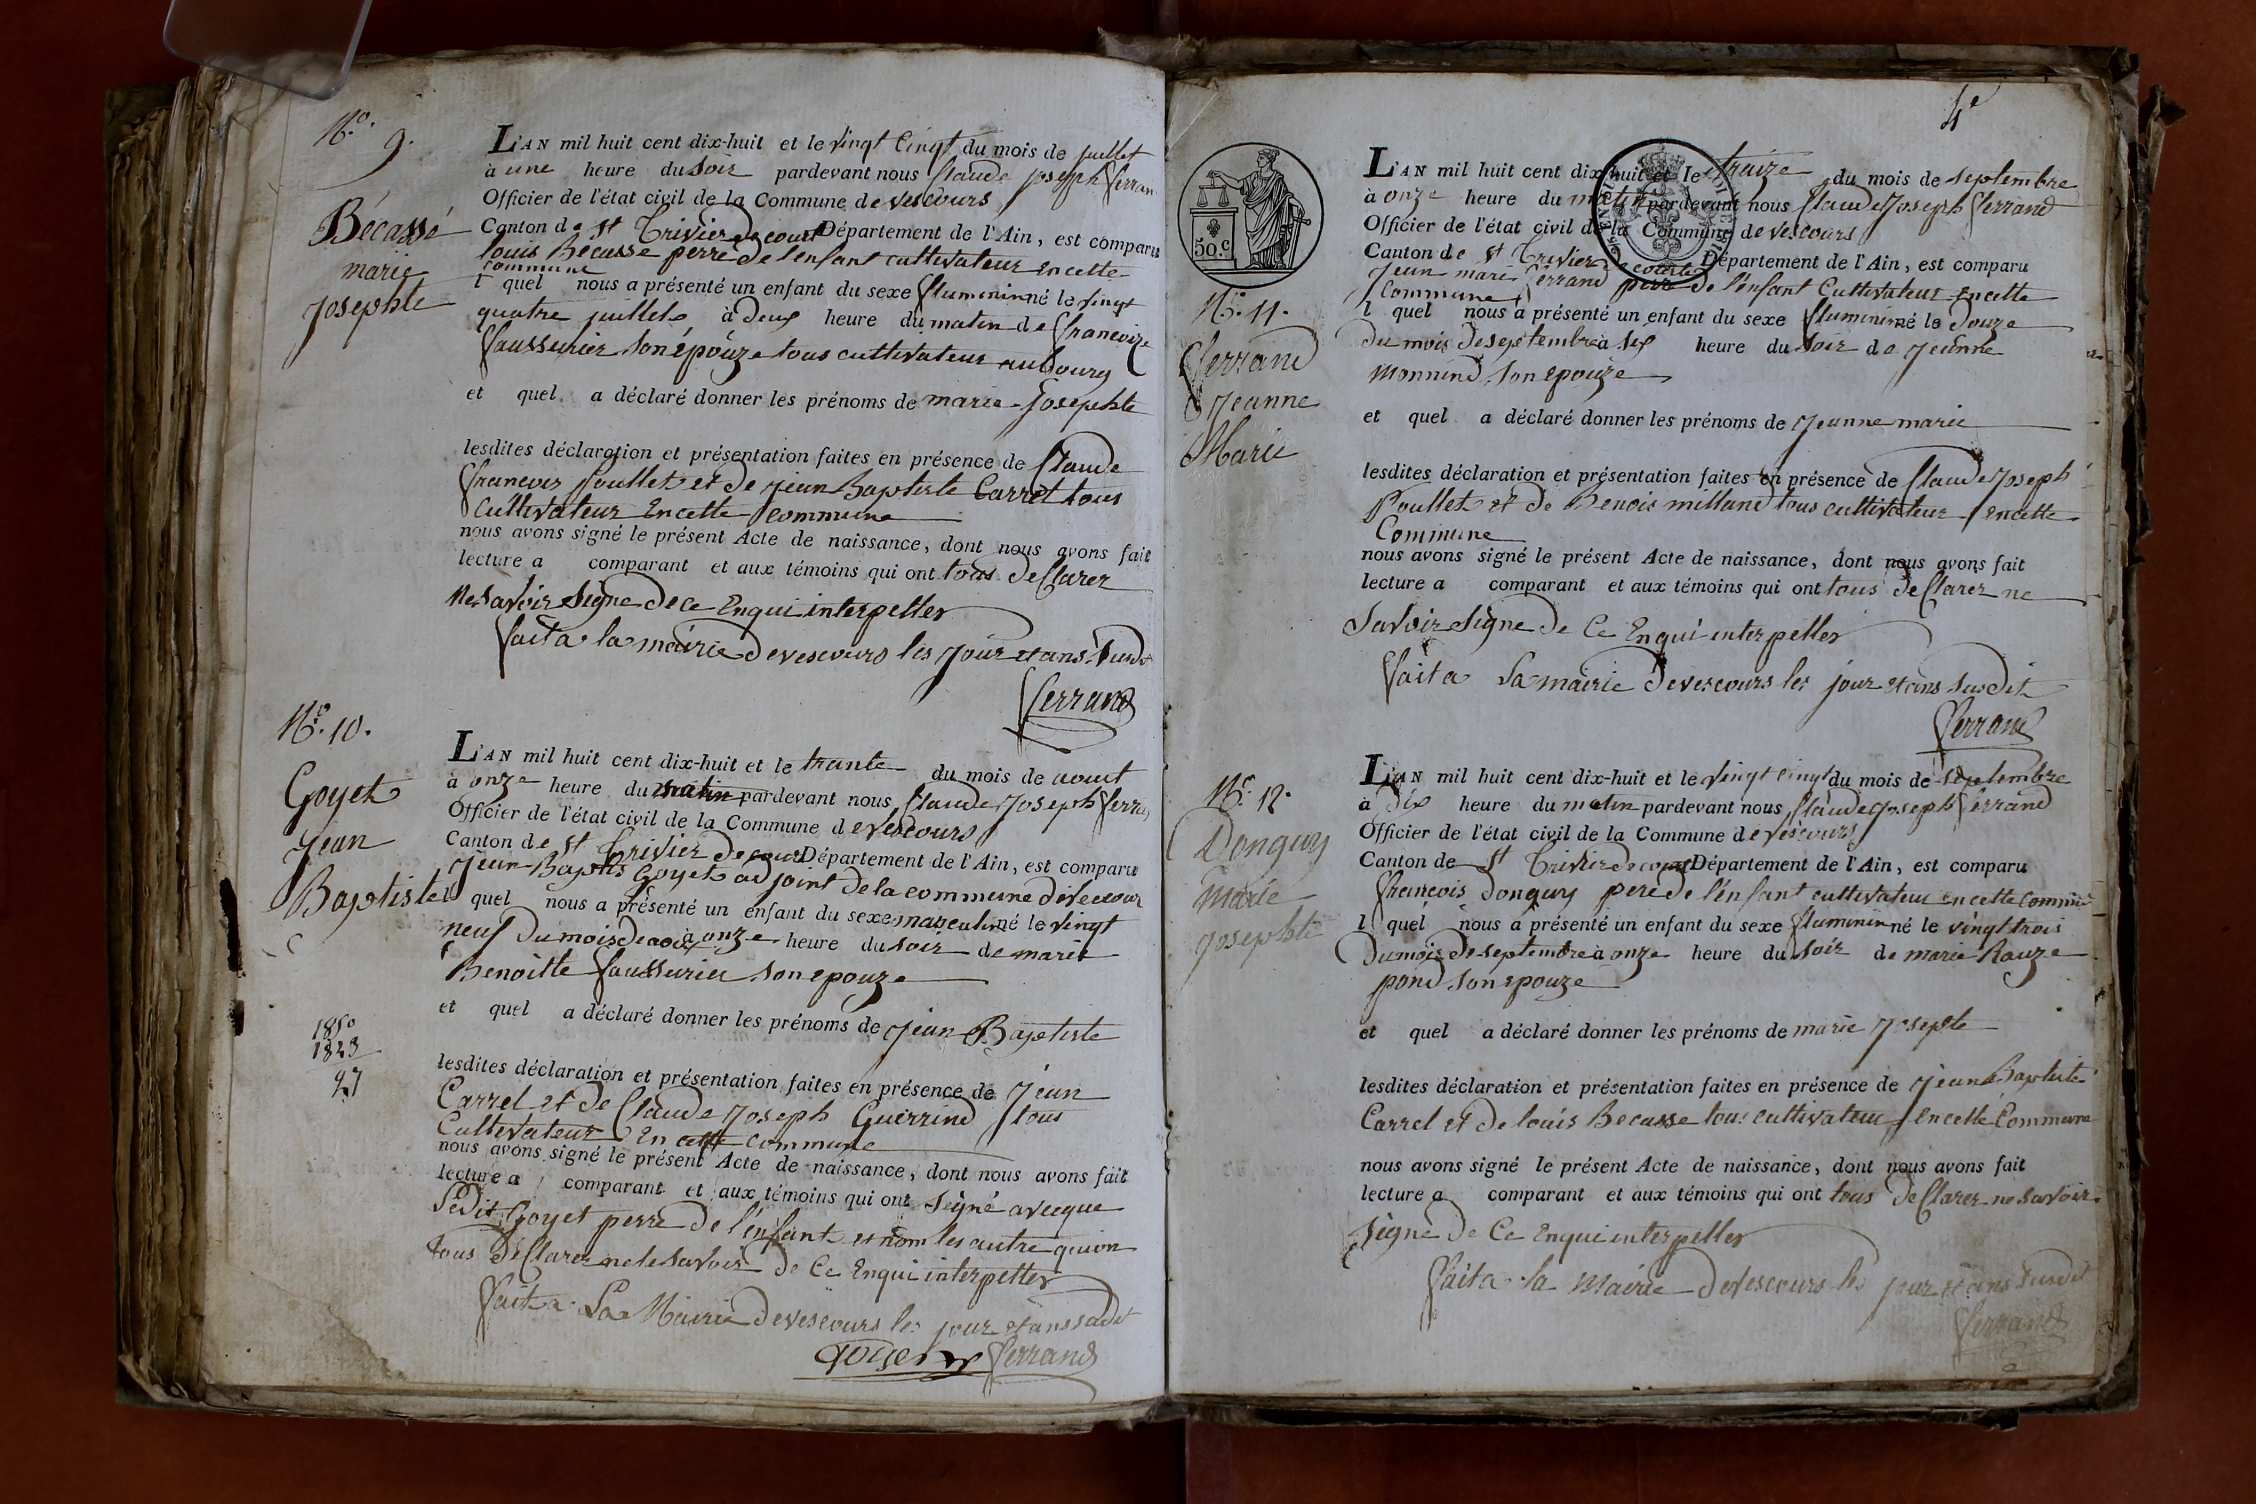 N.o 9.
Bécassé
marie
josephte
L'AN mil huit cent dix-huit et le vingt cinqt du mois de juillet
à une heure du soir pardevant nous Claude joseph ferran
Officier de l'état civil de la Commune de vescours
Canton de st Trivier de court Département de l'Ain, est comparu
louis Becasse perre de lenfant cultivateur en cette
commune
l quel nous a présenté un enfant du sexe fluminin né le vingt
quatre juillet à deux heure du matin de francoize
faussurier son épouze tous cultivateur aubourg
et quel a déclaré donner les prénoms de marie-Josephte
lesdites déclaration et présentation faites en présence de Claude
francois poullet et de jean Baptiste Carret tous
cultivateur en cette commune
nous avons signé le présent Acte de naissance, dont nous avons fait
lecture a comparant et aux témoins qui ont tous déClarer
ne savoir signe de ce Enqui interpeller
fait a la mairie devescours les jour et ans susdt
ferrand
N.o 10.
Goyet
jean
Baptiste
1850
1823
27
L'AN mil huit cent dix-huit et le trante du mois de aoust
à onze heure du matin pardevant nous Claude joseph ferra
Officier de l'état civil de la Commune de vescours
Canton de st Trivier de court Département de l'Ain, est comparu
jean-Baptis Goyet adjoint de la commune devescour
l quel nous a présenté un enfant du sexe masculin né le vingt
neuf du mois de aout à onze heure du soir de marie
Benoitte faussurier son epouze
et quel a déclaré donner les prénoms de jean Baptiste
lesdites déclaration et présentation faites en présence de jean
Carrel et de Claude joseph Guerrind tous
Cultivateur En cette commune
nous avons signé le présent Acte de naissance, dont nous avons fait
lecture a comparant et aux témoins qui ont signé avecque
ledit Goyet perre de l'enfant et nom les autre qui on
tous déClarer ne le savoir de Ce Enqui interpeller
fait a La Mairie devescours les jour et ans sudit
Goyet ferrand
4e
50.c
N.o 11.
ferrand
jeanne
Marie
L'AN mil huit cent dix-huit et le traize du mois de septembre
à onze heure du matin pardevant nous Claude joseph ferrand
Officier de l'état civil de la Commune de vescours
Canton de st Trivier de courte Département de l'Ain, est comparu
jean marie ferrand perre de l'enfant Cultivateur en cette
commune
l quel nous a présenté un enfant du sexe fluminin né le douze
du mois de septembre à six heure du soir de jeanne
monnind son epouize
et quel a déclaré donner les prénoms de jeanne marie
lesdites déclaration et présentation faites en présence de Claude joseph
Poullet et de Benois milland tous cultivateur en cette
Commune
nous avons signé le présent Acte de naissance, dont nous avons fait
lecture a comparant et aux témoins qui ont tous déClarer ne
savoir signe de Ce Enqui interpeller
fait a La mairie devescours les jour et ans susdit
ferrand
N.o 12.
Donguy
marie
josephte
L'AN mil huit cent dix-huit et le vingt cinqt du mois de septembre
à dix heure du matin pardevant nous Claude joseph ferrand
Officier de l'état civil de la Commune de vescours
Canton de st Trivier de court Département de l'Ain, est comparu
francois donguy pere de l'enfant cultivateur en cette commune
l quel nous a présenté un enfant du sexe fluminin né le vingt trois
du mois de septembre à onze heure du soir de marie Rauze
pond son epouze
et quel a déclaré donner les prénoms de marie josepte
lesdites déclaration et présentation faites en présence de jean Baptiste
Carrel et de louis Becasse tous cultivateur en cette Commune
nous avons signé le présent Acte de naissance, dont nous avons fait
lecture a comparant et aux témoins qui ont tous déClarer ne savoir
signe de Ce Enqui interpeller
fait a la mairie devescours les jour et ans susdit
ferrand